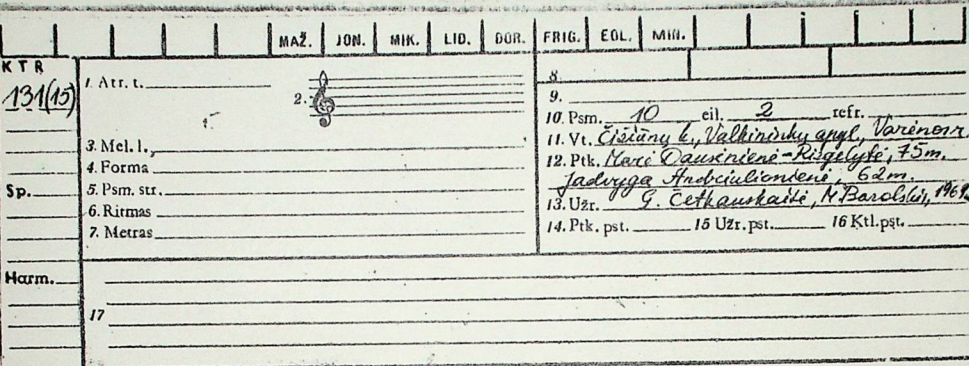 MAŽ. JON. MIK. LID. DOR. FRIG. EOL. MIN.
KTR
131(15)
Sp.
Harm.
1. Atr. t.
2.
3. Mel. l.
4. Forma
5. Psm. str.
6. Ritmas
7. Metras
8.
9.
10. Psm. 10 eil. 2 refr.
11. Vt. Čižiūnų k., Valkininkų apyl., Varėnos r
12. Ptk. Marė Dausinienė-Risgelytė, 75m.
Jadvyga Andciulionienė, 62m.
13. Užr. G. Četkauskaitė, 1969
14. Ptk. pst. 15 Užr. pst. 16 Ktl. pst.
17